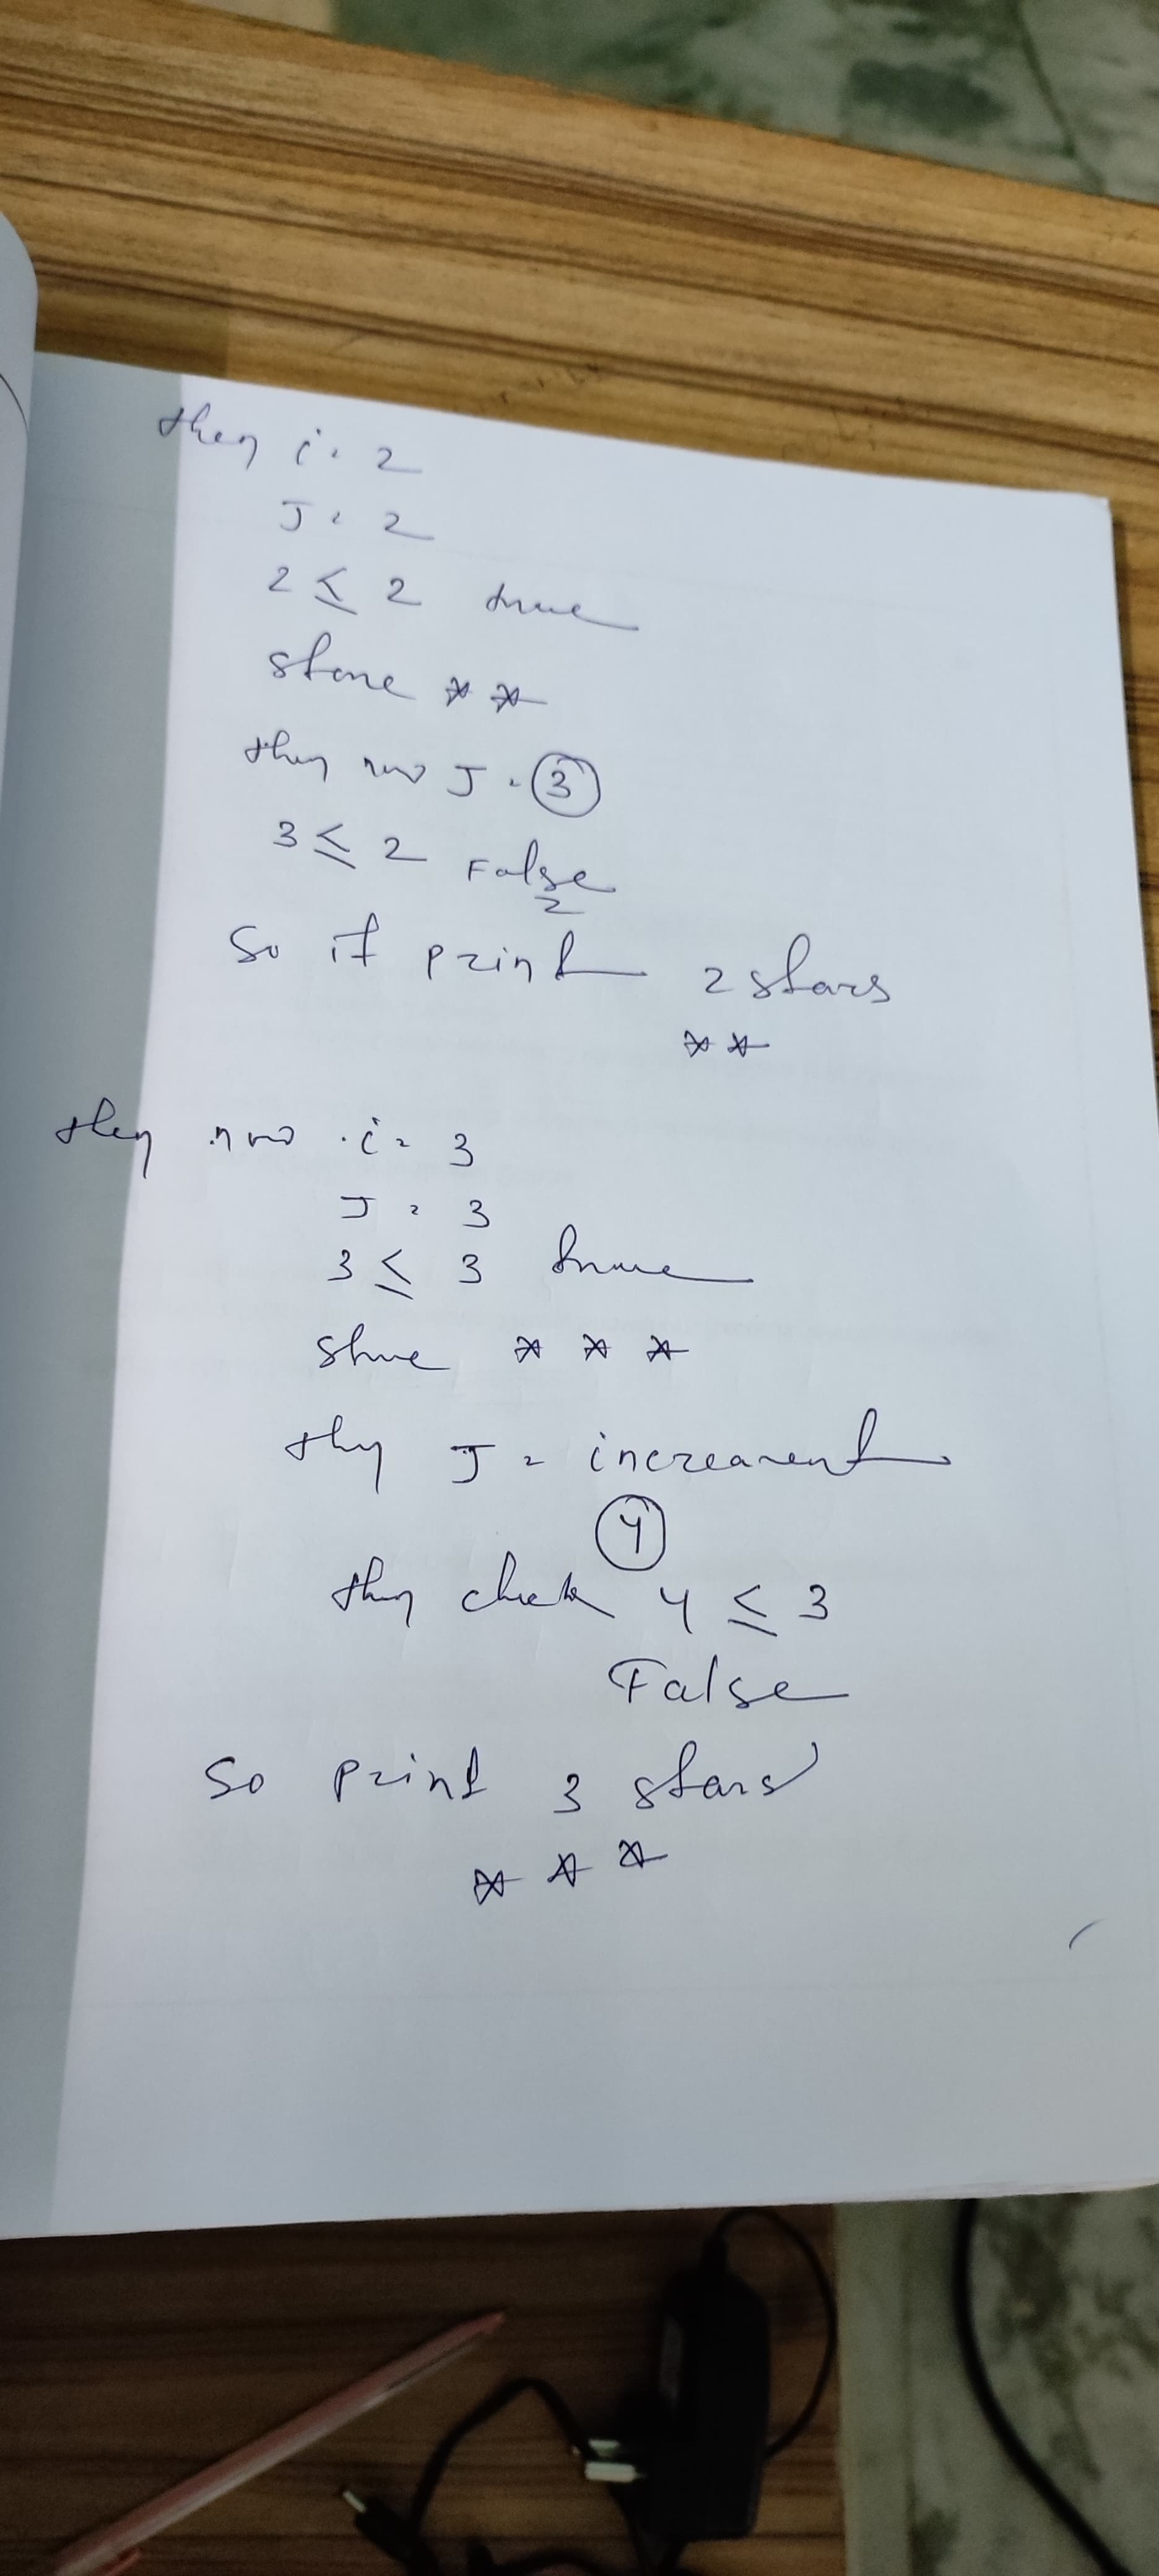 then i = 2
J = 2
2 ≤ 2 true
store * *
then now J = 3
3 ≤ 2 False
2
So it print 2 stars
* *
then now i = 3
J = 3
3 ≤ 3 true
store * * *
then J = increament
4
then check 4 ≤ 3
False
So print 3 stars
* * *